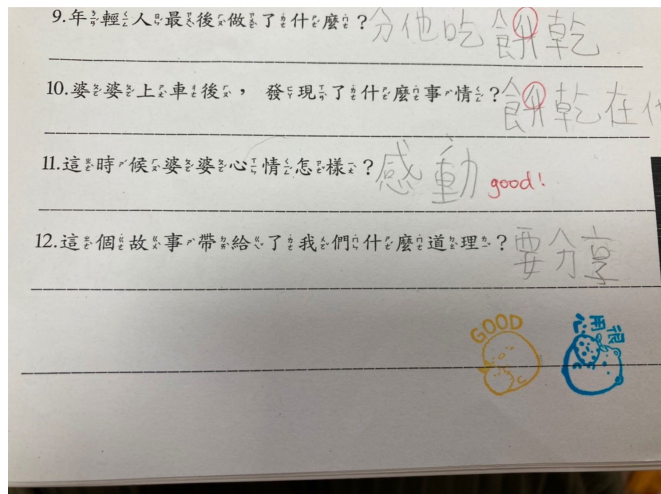 9.年輕人最後做了什麼？分他吃餅乾
10.婆婆上車後，發現了什麼事情？餅乾在
11.這時候婆婆心情怎樣？感動 good!
12.這個故事帶給了我們什麼道理？要分享
GOOD
很開心